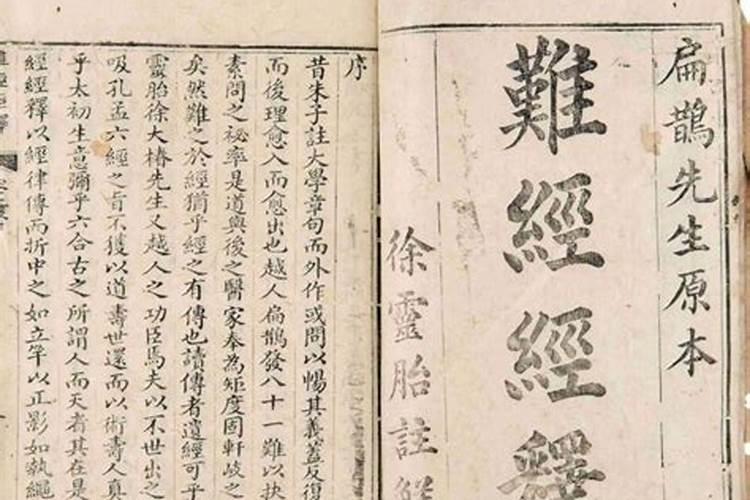 扁鵲先生原本
難經經釋
徐靈胎註解
序
昔朱子註大學章句而外作或問以暢其義蓋反復
而後理愈入而愈出也越人扁鵲發八十一難以抉
素問之秘率是道與後之醫家奉為矩度固軒岐之
矣然難之於經猶乎經之有傳也讀傳者遺經可乎
靈胎徐大椿先生又越人之功臣焉夫以不世出之
吸孔孟六經之旨不獲以道壽世還而以術壽人真
乎太初生意彌乎六合古之所謂人而天者其在是
經經釋以經律傳而折中之如立竿以正影如執繩